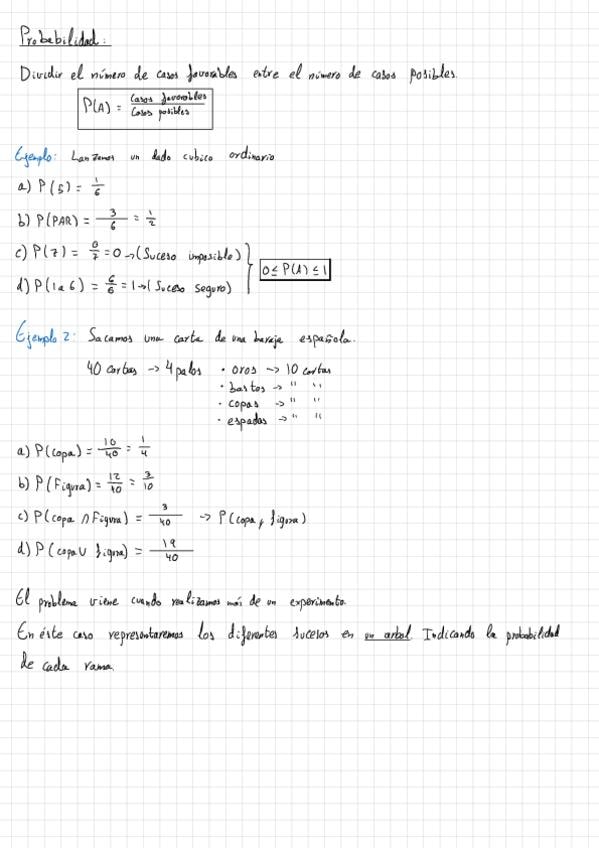 Probabilidad:
Dividir el número de casos favorables entre el número de casos posibles.
P(A) = Casos favorables / Casos posibles
Ejemplo: Lanzamos un dado cubico ordinario
a) P(5) = 1/6
b) P(PAR) = 3/6 = 1/2
c) P(7) = 0/7 = 0 → (Suceso imposible)
0 ≤ P(A) ≤ 1
d) P(1 a 6) = 6/6 = 1 → (Suceso seguro)
Ejemplo 2: Sacamos una carta de una baraja española.
40 cartas → 4 palos · oros → 10 cartas
· bastos → " "
· copas → " "
· espadas → " "
a) P(copa) = 10/40 = 1/4
b) P(Figura) = 12/40 = 3/10
c) P(copa ∩ Figura) = 3/40 → P(copa y figura)
d) P(copa ∪ figura) = 19/40
El problema viene cuando realizamos más de un experimento.
En éste caso representaremos los diferentes sucesos en un arbol. Indicando la probabilidad
de cada rama.